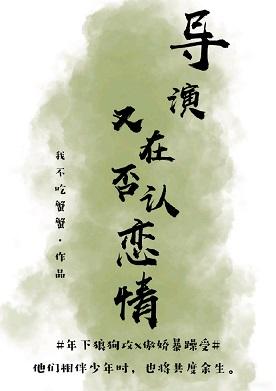 导演又在否认恋情
我不吃蟹蟹·作品
#年下狼狗攻x傲娇暴躁受#
他们相伴少年时，也将共度余生。